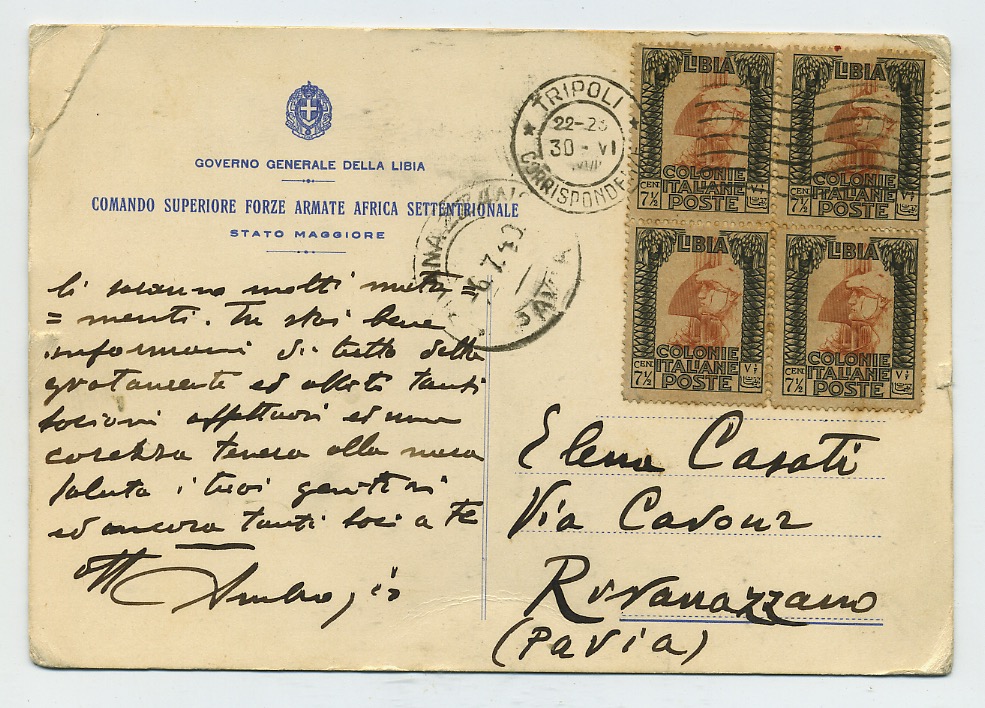 GOVERNO GENERALE DELLA LIBIA
COMANDO SUPERIORE FORZE ARMATE AFRICA SETTENTRIONALE
STATO MAGGIORE
TRIPOLI
22-23
30-VI
CORRISPONDENZE
6.7.40
LIBIA
COLONIE
ITALIANE
CEN. 7½ POSTE
LIBIA
COLONIE
ITALIANE
CEN. 7½ POSTE
LIBIA
COLONIE
ITALIANE
CEN. 7½ POSTE
LIBIA
COLONIE
ITALIANE
CEN. 7½ POSTE
ci saranno molti muta=
=menti. Tu stai bene
informami di tutto detta
ed tanti
affettuosi ed una
carezza tenera alla
saluta i tuoi genitori
ed ancora tanti baci a te
Ambrogio
Elena Casati
Via Cavour
Rivanazzano
(Pavia)